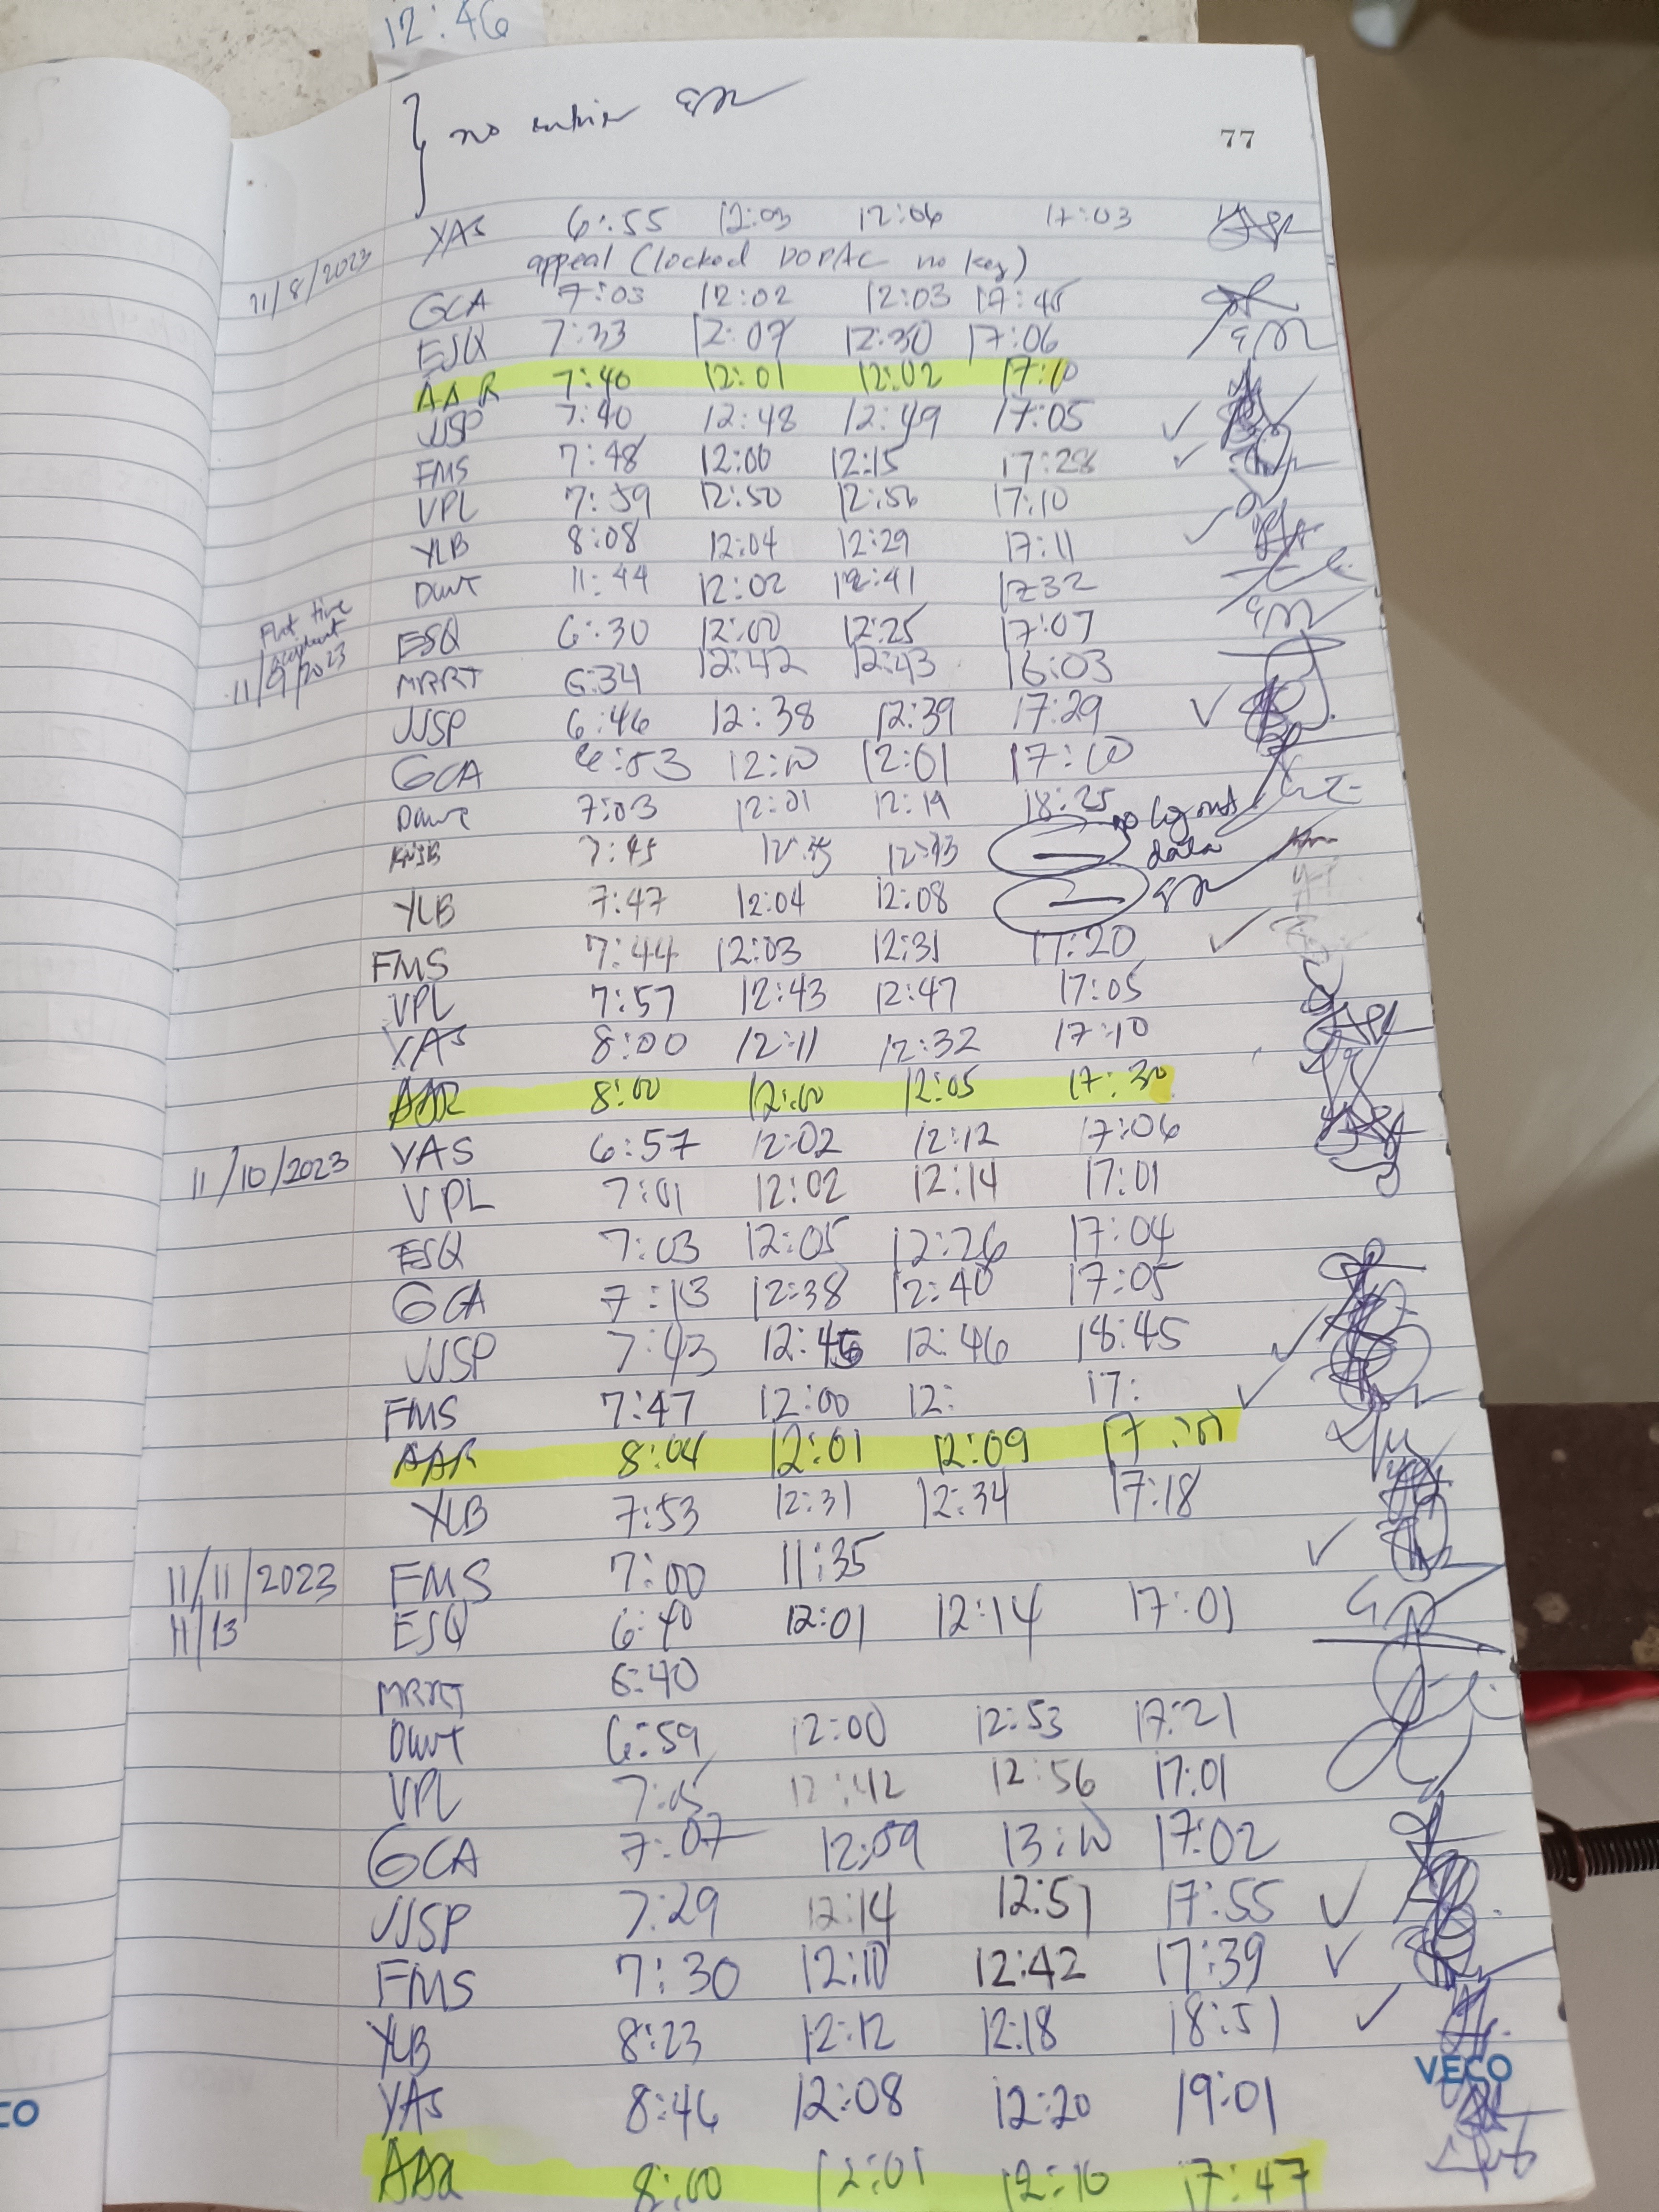 12:46
no entries
77
YAS 6:55 12:03 12:06 17:03
11/8/2023 appeal (locked DOPAC no key)
GCA 7:03 12:02 12:03 17:45
ESQ 7:33 12:07 12:30 17:06
AAR 7:40 12:01 12:02 17:10
JJSP 7:40 12:48 12:49 17:05
FMS 7:48 12:00 12:15 17:28
VPL 7:59 12:50 12:56 17:10
YLB 8:08 12:04 12:29 17:11
11:44 12:02 12:41 17:32
Flat tire accident
ESQ 6:30 12:00 12:25 17:07
11/9/2023 MRRT 6:34 12:42 12:43 16:03
JJSP 6:46 12:38 12:39 17:29
GCA 6:53 12:00 12:01 17:00
7:03 12:01 12:19 18:25 no log out
7:45 — data
YLB 7:47 12:04 12:08 —
FMS 7:44 12:03 12:31 17:20
VPL 7:57 12:43 12:47 17:05
YAS 8:00 12:11 12:32 17:10
AAR 8:00 12:00 12:05 17:30
11/10/2023 YAS 6:57 12:02 12:12 17:06
VPL 7:01 12:02 12:14 17:01
ESQ 7:03 12:05 12:26 17:04
GCA 7:13 12:38 12:40 17:05
JJSP 7:43 12:45 12:46 18:45
FMS 7:47 12:00 12: 17:
AAR 8:04 12:01 12:09
YLB 7:53 12:31 12:34 17:18
11/11/2023 FMS 7:00 11:35
11/13 ESQ 6:40 12:01 12:14 17:01
MRRT 6:40
6:59 12:00 12:53 17:21
VPL 7:05 12:42 12:56 17:01
GCA 7:07 12:59 13:00 17:02
JJSP 7:29 12:14 12:51 17:55
FMS 7:30 12:10 12:42 17:39
YLB 8:23 12:12 12:18 18:51
YAS 8:46 12:08 12:20 19:01
VECO
AAR 8:00 12:01 12:10 17:47
CO